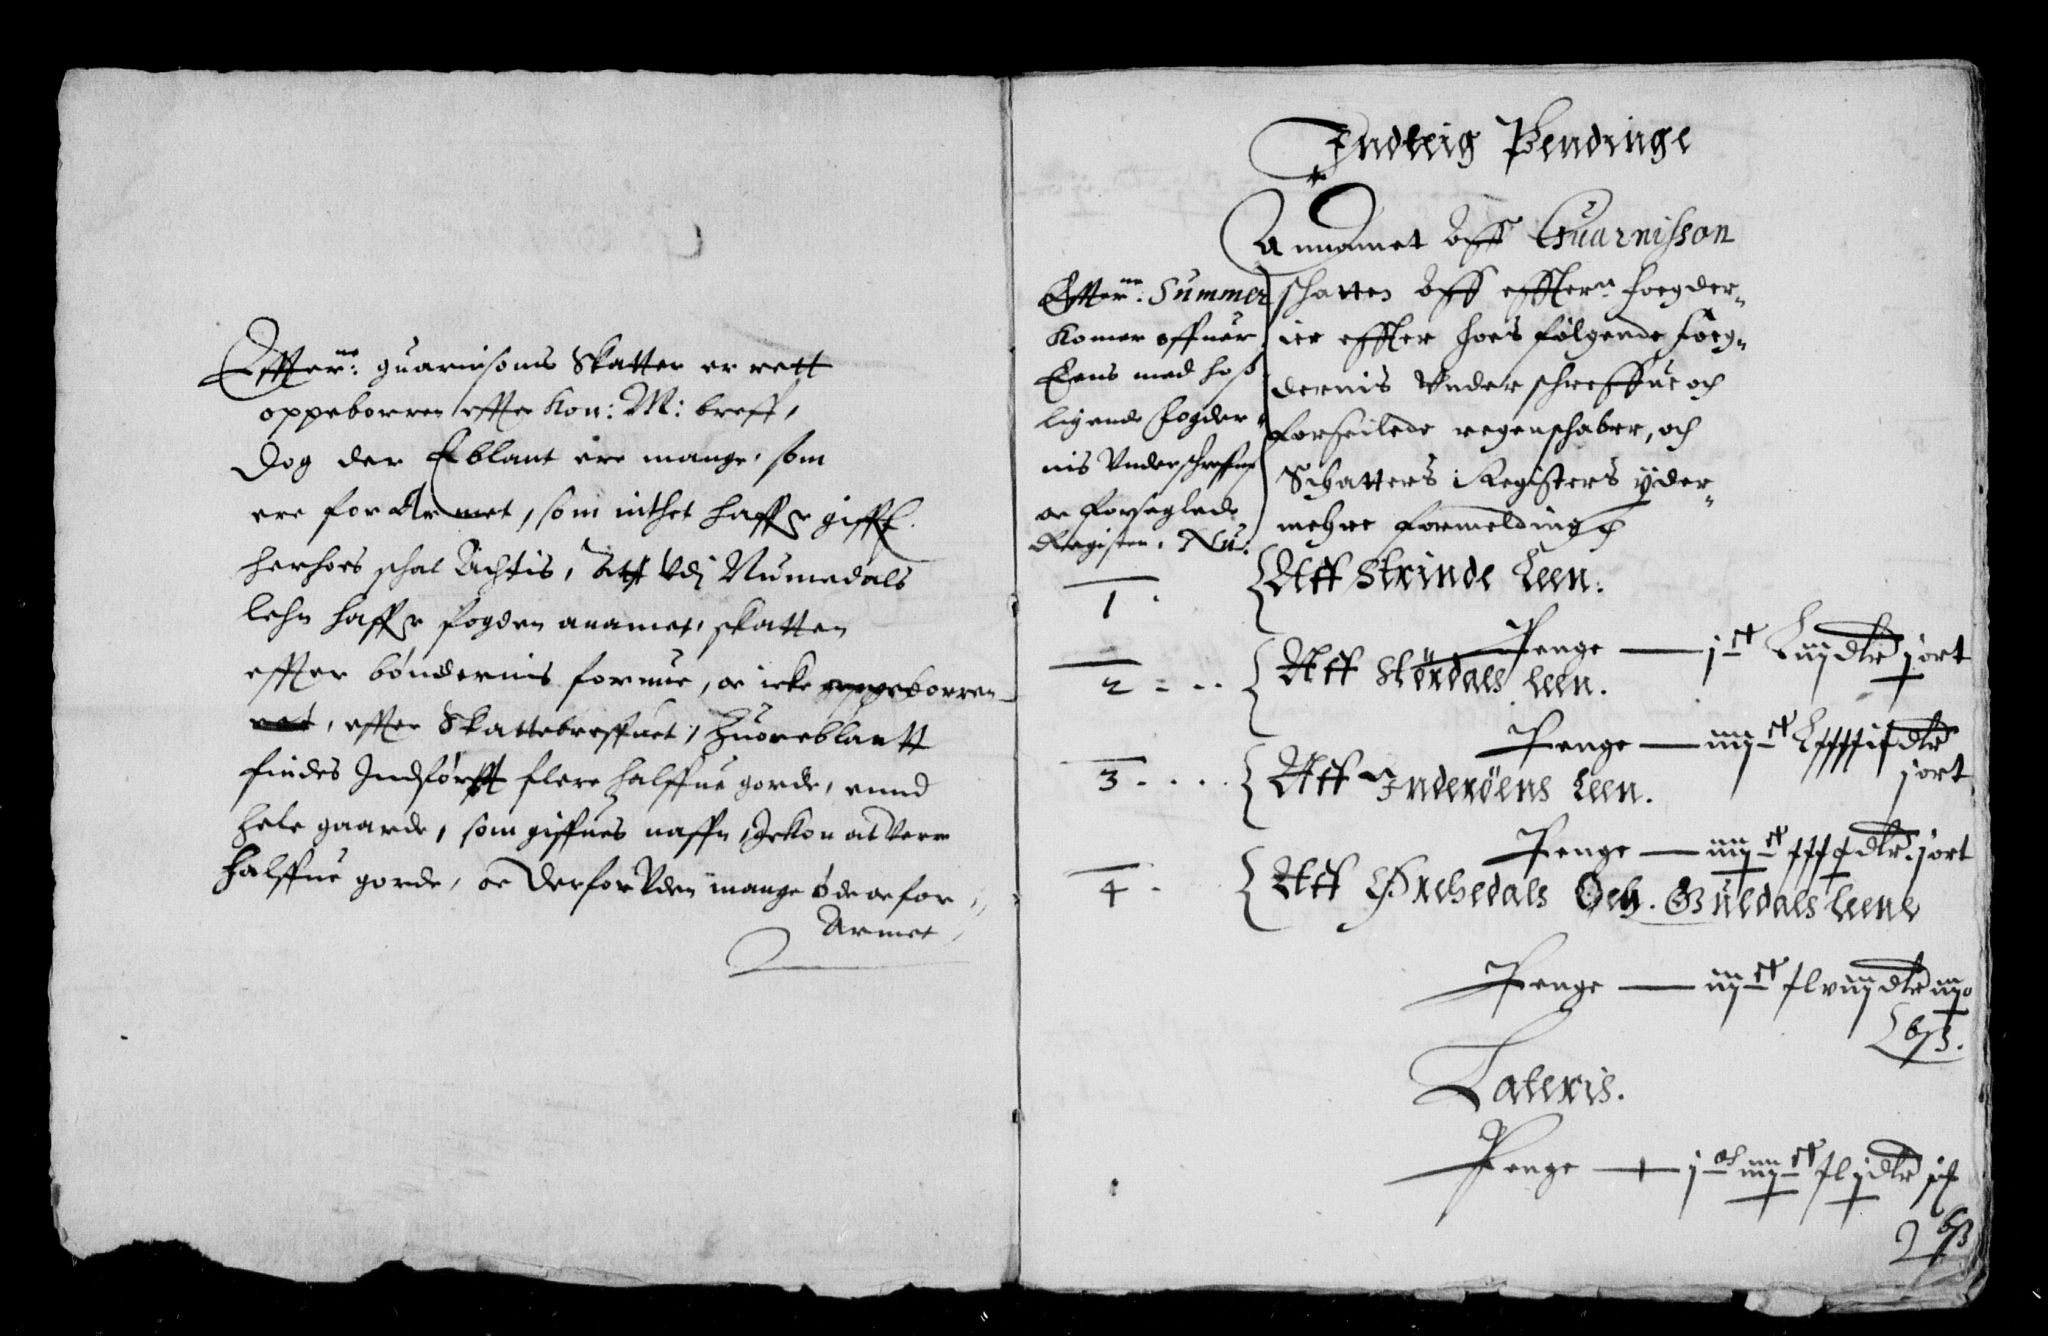 Effterne: guarnisons Skatter er rett
oppeborren effter Kon: M: breff,
Dog der Eblant ere mange, som
ere forArmet, som inthet haffr gifft.
herhoes schal Achtis, Att Vdj Numedals
lehn haffr fogden anamet, skatten
effter bøndernis formue, oc icke oppeborren
effter Skattebreffuet, Huoreblantt
findes Indførtt flere halffue gorde, ennd
hele gaarde, som giffues naffn, Jckon at Vere
halffue gorde, oc derforVden mange øde oc for
Armet
Indteig Pendinge
Annamet Aff Guarnisson
schatten Aff efftern: foegder-
ier effter hoes følgende foeg-
dernis Vnderschreffue och
forseilede regenschaber, och
Schatters Registers ÿder-
mehre formelding
Efterne: Summer
Komer offuer
Eens med hoß
ligende fogder-
nis Vnderschreffne
oc forseglede
Register. Nu:
1 Aff Strinde Leen.
Penge — j ct Liiij dlr j ort
2 Aff Størdals Leen.
Penge — iiij ct Lxxxxix dlr
j ort
3 Aff Inderöens Leen.
Penge — iiij ct dlr. j ort
4 Aff Orchedals Och. Guldals Leene
Penge — iiij ct xlviij dlr iij o
Lateris.
Penge — j m iiij ct xlj dlr